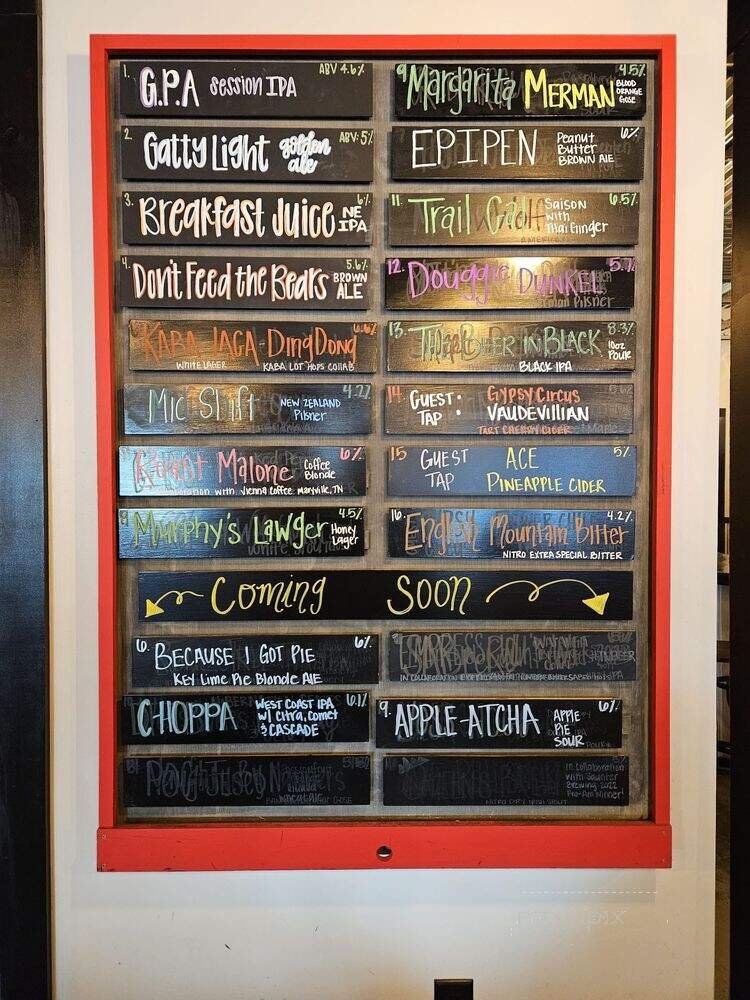 1. G.P.A session IPA ABV 4.6%
2. Gatty Light golden ale ABV: 5%
3. Breakfast Juice NE IPA 6%
4. Don't Feed the Bears BROWN ALE 5.6%
KABA JAGA DingDong 6.6%
WHITE LAGER KABA LOT HOPS COLLAB
Mic Shift NEW ZEALAND Pilsner 4.2%
Malone Coffee Blonde 6%
with Vienna Coffee Maryville, TN
Murphy's Lawger Honey Lager 4.5%
9 Margarita MERMAN BLOOD ORANGE GOSE 4.5%
EPIPEN Peanut Butter BROWN ALE 6%
11. Trail SAISON with Thai Ginger 6.5%
12. Douggie DUNKEL 5.7%
13. BEER IN BLACK 8.3%
BLACK IPA 10oz POUR
14. GUEST TAP: Gypsy Circus
VAUDEVILLIAN
TART CHERRY CIDER
15 GUEST TAP ACE 5%
PINEAPPLE CIDER
16. English Mountain Bitter 4.2%
NITRO EXTRA SPECIAL BITTER
Coming SOON
6. BECAUSE I GOT PIE 6%
KEY LIME PIE BLONDE ALE
CHOPPA WEST COAST IPA W/ CITRA, COMET & CASCADE 6.1%
9. APPLE-ATCHA APPLE PIE SOUR 6%
In collaboration
with Saunter
Brewing 2022
Pro-Am Winner!